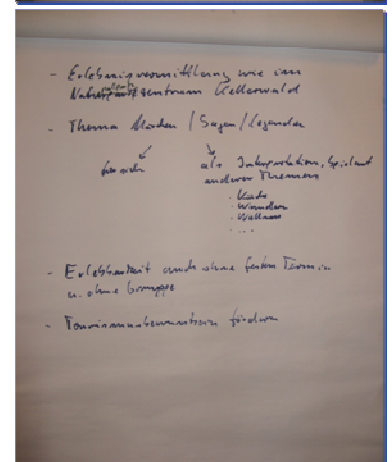 - Erlebnisvermittlung wie im
zentrum Kellerwald
- Thema Märchen / Sagen / Legenden
für sich
als Interpretation,
anderer Themen
· Wandern
· ...
- Erlebbarkeit auch ohne festen Termin
u. ohne Gruppe
- Tourismusbewusstsein fördern